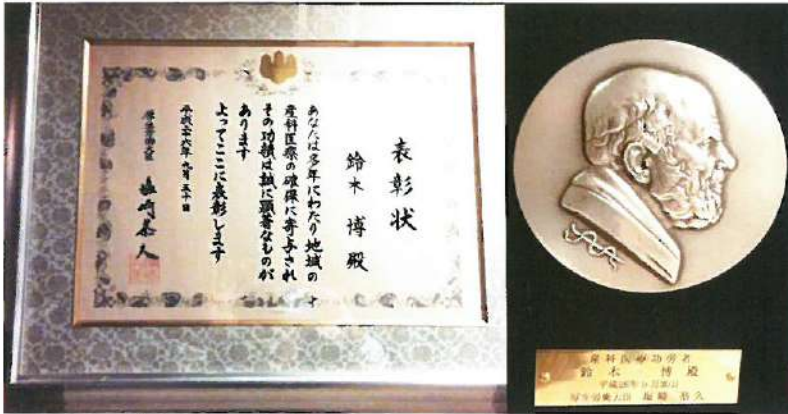 表彰状
鈴木 博 殿
あなたは多年にわたり地域の
産科医療の確保に寄与され
その功績は誠に顕著なものが
あります
よってここに表彰します
平成二十六年 九月 三十日
厚生労働大臣 塩崎恭久
産科医療功労者
鈴木 博 殿
平成26年9月30日
厚生労働大臣 塩崎 恭久